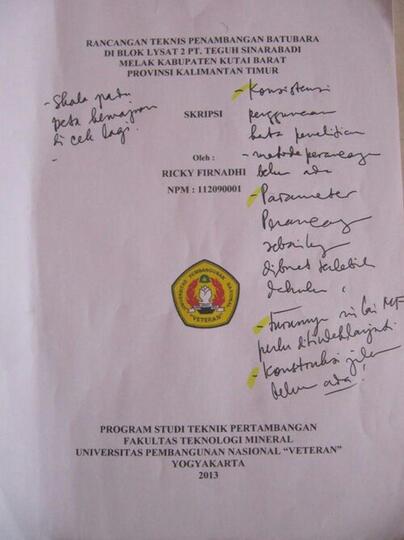 RANCANGAN TEKNIS PENAMBANGAN BATUBARA
DI BLOK LYSAT 2 PT. TEGUH SINARABADI
MELAK KABUPATEN KUTAI BARAT
PROVINSI KALIMANTAN TIMUR
- Skala pada
peta kemajuan
di cek lagi.
-
SKRIPSI
Oleh :
RICKY FIRNADHI
NPM : 112090001
- Konsistensi
penggunaan
kata penelitian
- metode perancangan
belum ada
- Parameter
Perancang
sebaiknya
dibuat terlebih
dahulu
- Turunnya nilai MF
perlu ditindaklanjuti
- Konstruksi jalan
belum ada!
UNIVERSITAS PEMBANGUNAN NASIONAL
"VETERAN"
PROGRAM STUDI TEKNIK PERTAMBANGAN
FAKULTAS TEKNOLOGI MINERAL
UNIVERSITAS PEMBANGUNAN NASIONAL “VETERAN”
YOGYAKARTA
2013